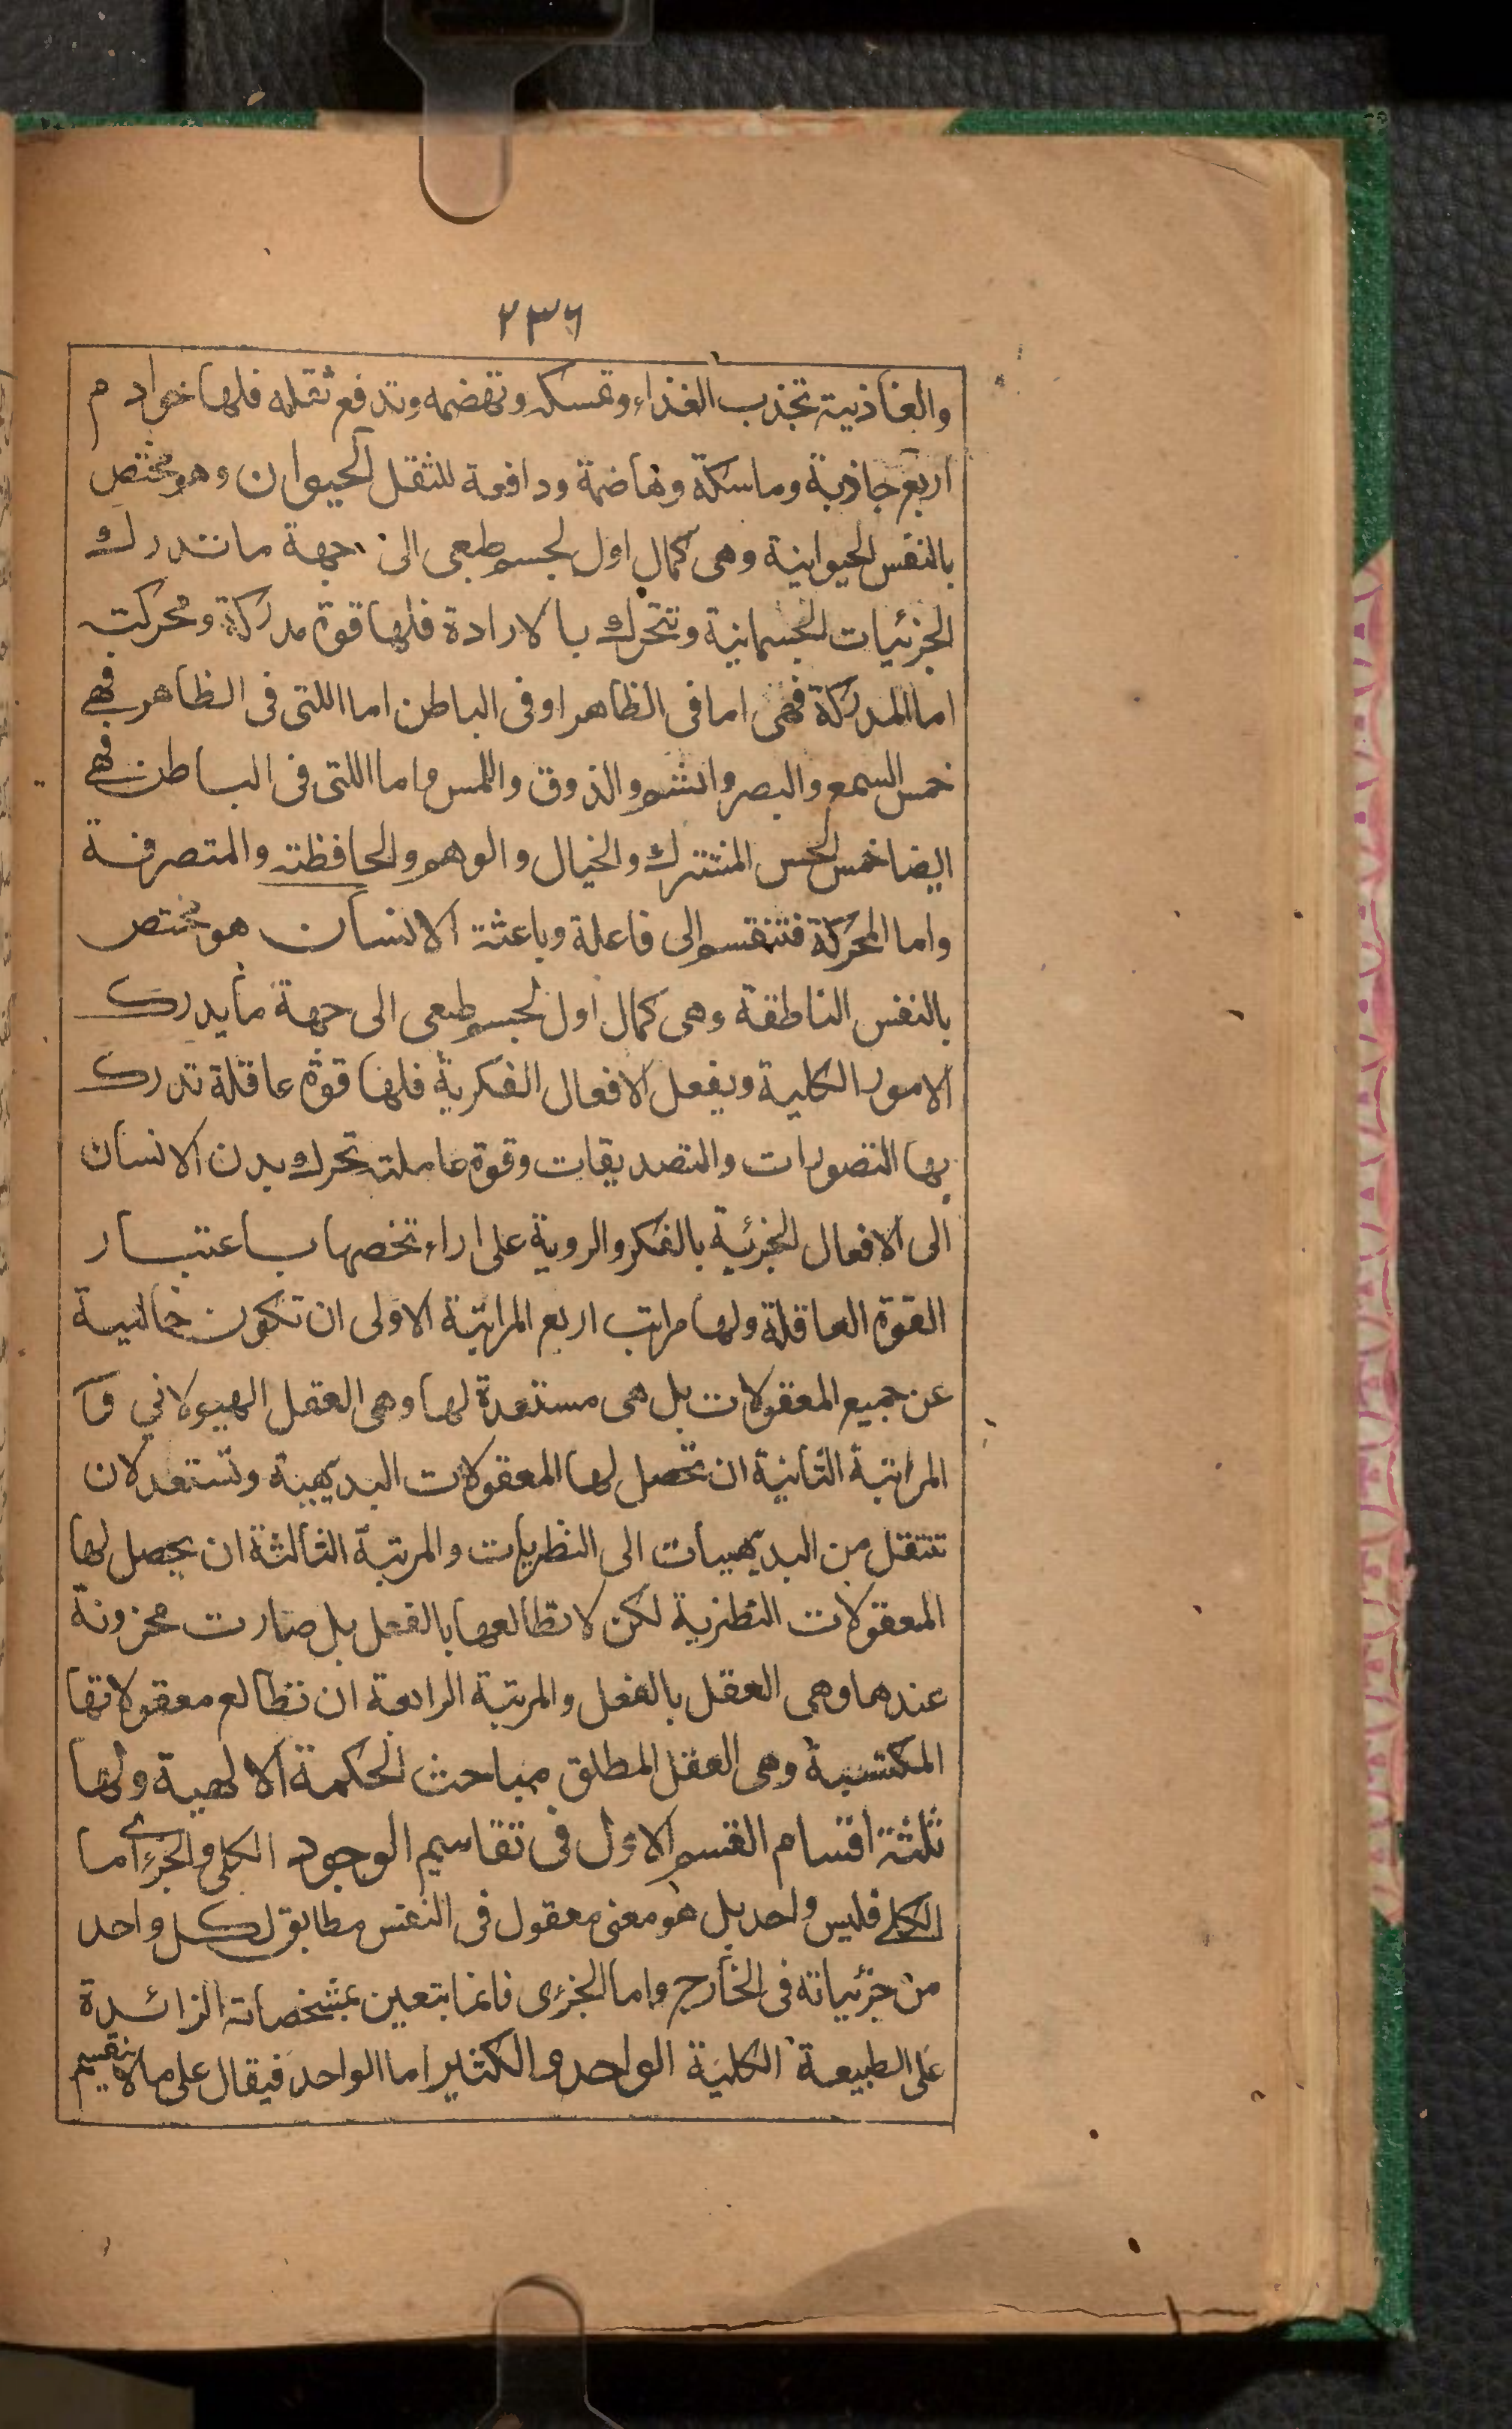 ٢٣٦
والغاذية تجذب الغذاء وتمسكه وتهضمه وتدفع ثقله فلها خوادم
اربع جاذبة وماسكة وهاضمة ودافعة للثقل الحيوان وهو مختص
بالنفس الحيوانية وهى كمال اول لجسم طبعى الى جهة ما تدرك
الجزئيات الجسمانية وتتحرك بالارادة فلها قوة مدركة ومحركت
اما المدركة فهى اما فى الظاهر او فى الباطن اما اللتى فى الظاهر فهى
خمس السمع والبصر والشم والذوق واللمس واما اللتى فى الباطن فهى
ايضا خمس الحس المشترك والخيال والوهم والحافظته والمتصرفة
واما المحركة فتنقسم الى فاعلة وباعثة الانسان هو مختص
بالنفس الناطقة وهى كمال اول لجسم طبعى الى جهة ما يدرك
الامور الكلية ويفعل الافعال الفكرية فلها قوة عاقلة تدرك
بها التصورات والتصديقات وقوة عاملته تحرك بدن الانسان
الى الافعال الجزئية بالفكر والروية على اراء تخصها باعتبار
القوة العاقلة ولها مراتب اربع المراتبة الاولى ان تكون خالية
عن جميع المعقولات بل هى مستعدة لها وهى العقل الهيولاني وا
المراتبة الثانية ان تحصل لها المعقولات البديهية وتستعد لان
تنتقل من البديهيات الى النظريات والمرتبة الثالثة ان يحصل لها
المعقولات النظرية لكن لا تطالعها بالفعل بل صارت مخزونة
عندها وهى العقل بالفعل والمرتبة الرابعة ان تطالع معقولاتها
المكتسبة وهى العقل المطلق مباحث الحكمة الالهية ولها
ثلثة اقسام القسم الاول فى تقاسيم الوجود الكلى والجزءى اما
الكلى فليس واحد بل هو معنى معقول فى النفس مطابق لكل واحد
من جزئياته فى الخارج واما الجزءى فانما يتعين بمشخصاته الزائدة
على الطبيعة الكلية الواحد والكثير اما الواحد فيقال على ما لا ينقسم